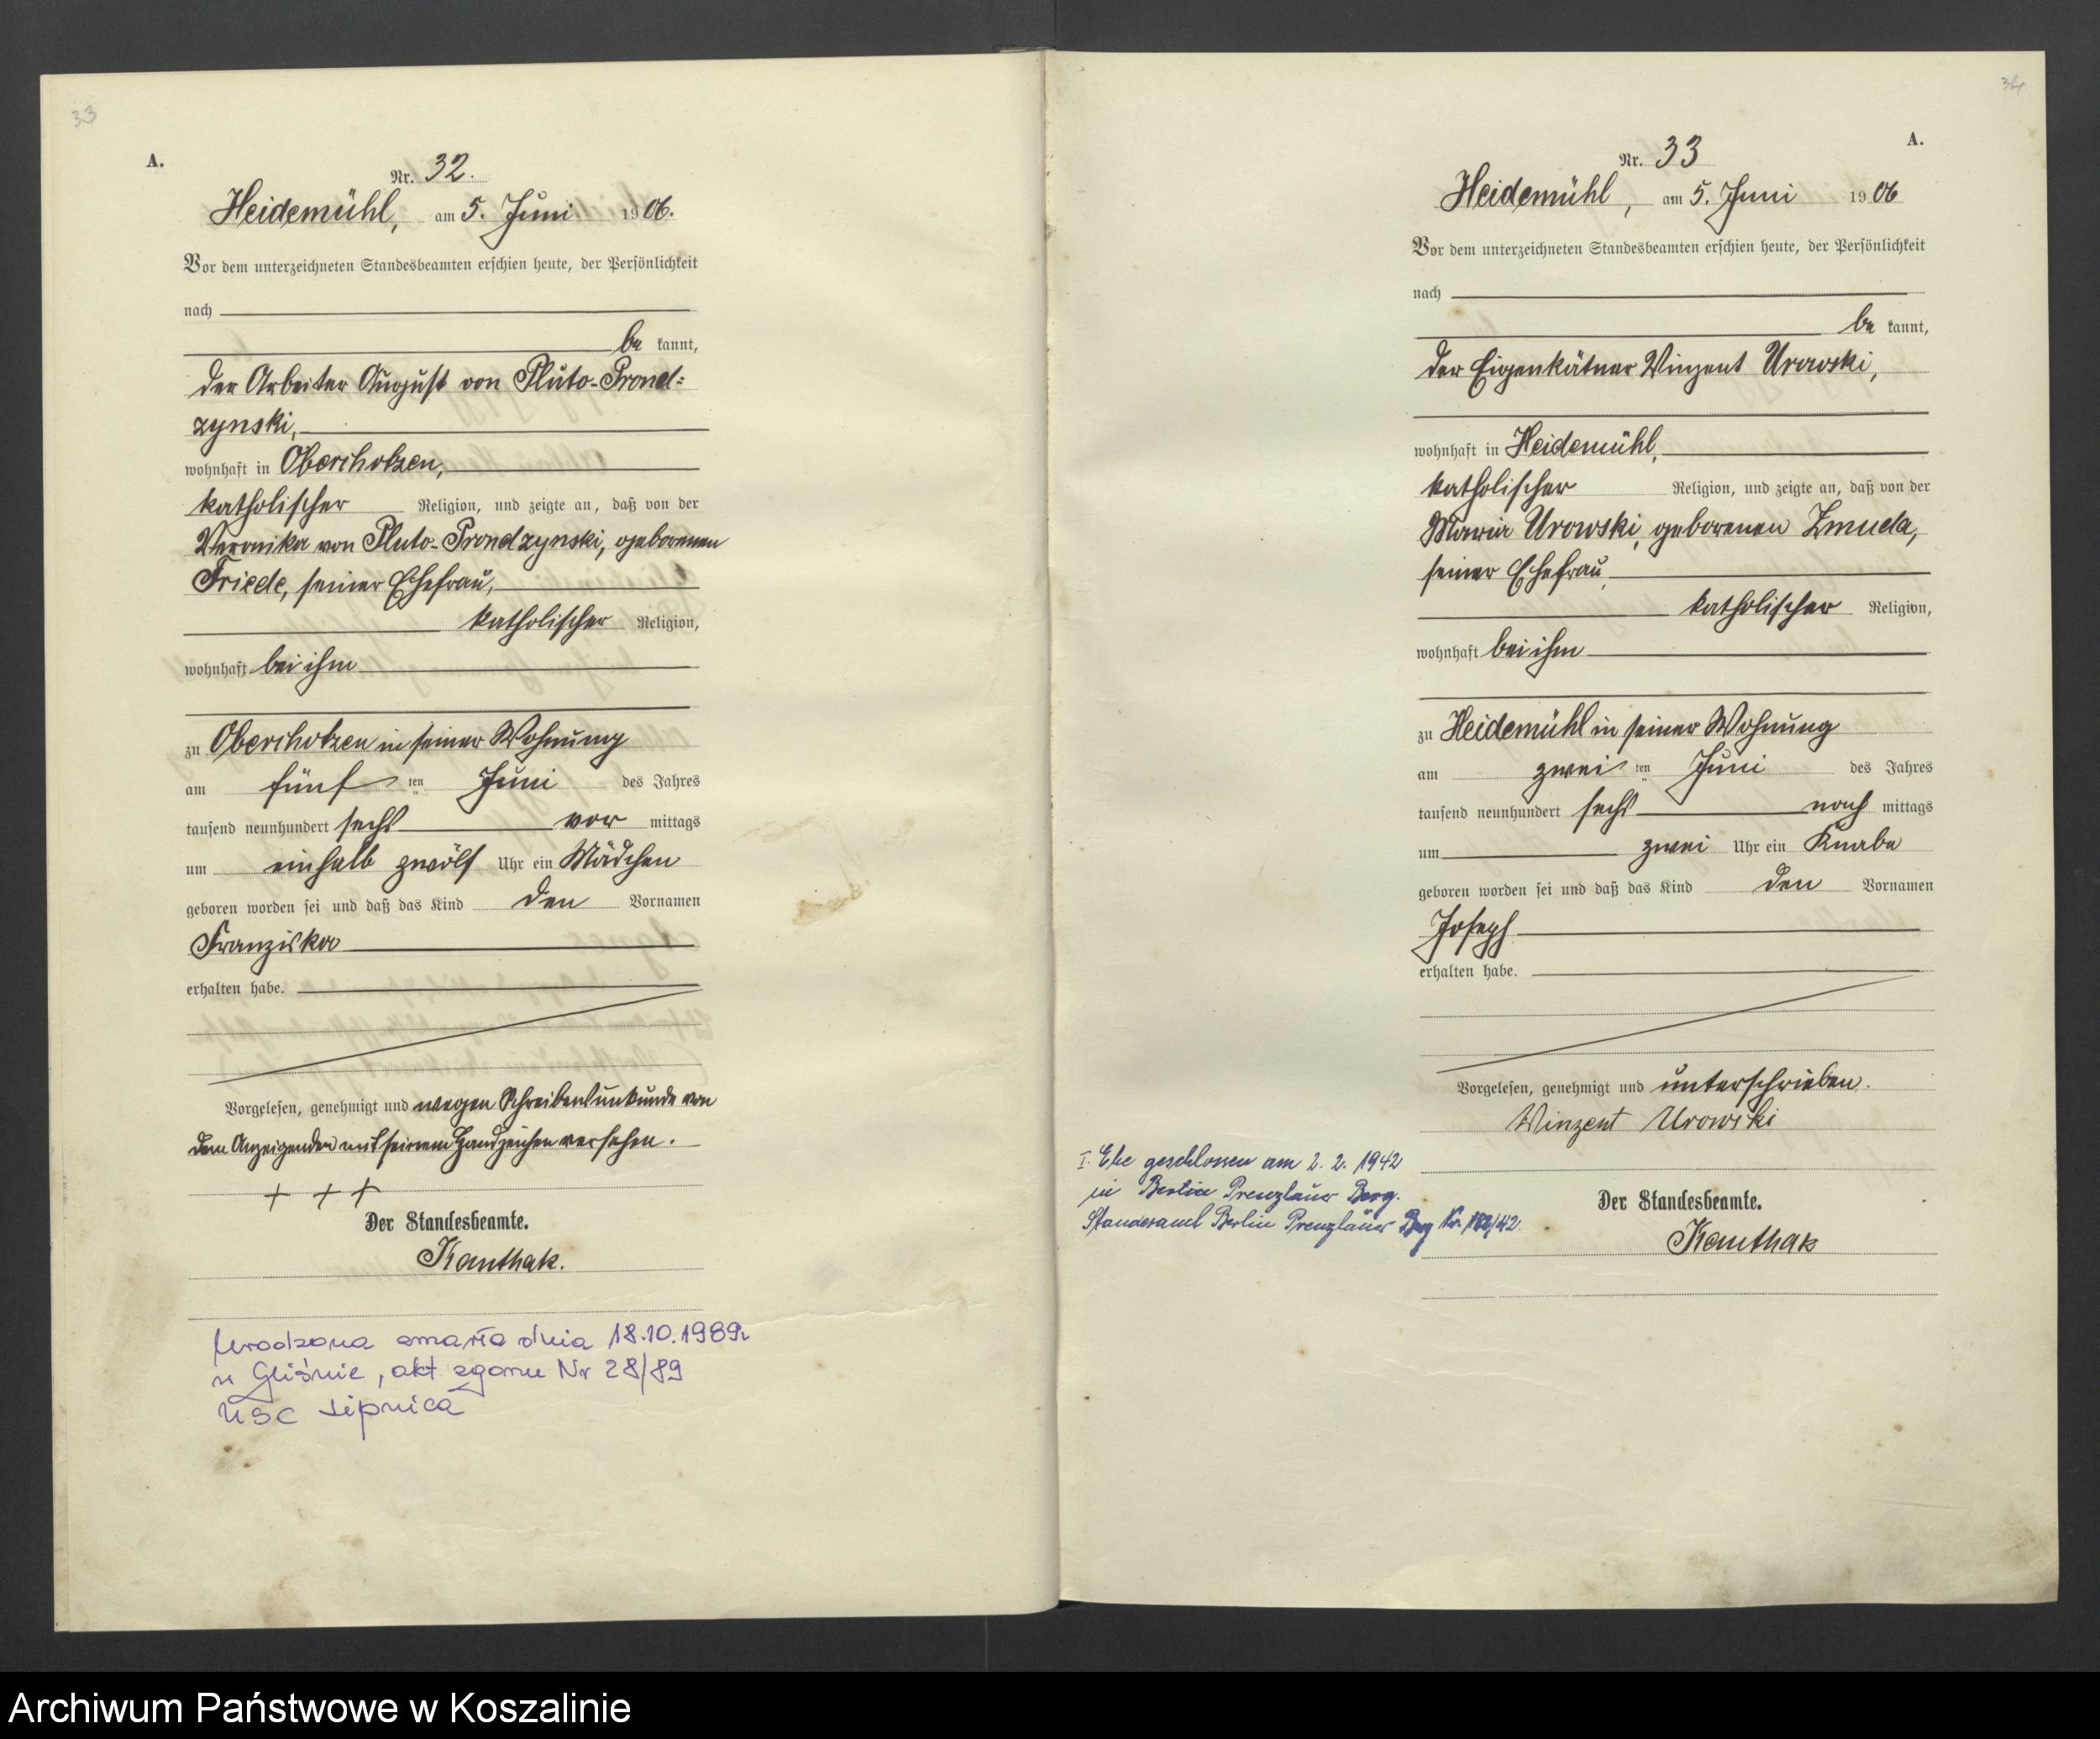 33
A.
Nr. 32.
Heidemühl, am 5. Juni 1906.
Vor dem unterzeichneten Standesbeamten erschien heute, der Persönlichkeit
nach
be kannt,
der Arbeiter August von Pluto-Prond-
zynski,
wohnhaft in Oberchotzen,
katholischer Religion, und zeigte an, daß von der
Veronika von Pluto-Prondzynski, geborenen
Friede, seiner Ehefrau,
katholischer Religion,
wohnhaft bei ihm
zu Oberchotzen in seiner Wohnung
am fünf ten Juni des Jahres
tausend neunhundert sechs vor mittags
um einhalb zwölf Uhr ein Mädchen
geboren worden sei und daß das Kind den Vornamen
Franziska
erhalten habe.
Vorgelesen, genehmigt und wegen Schreibensunkunde von
dem Anzeigenden mit seinem Handzeichen versehen.
+ + +
Der Standesbeamte.
Kanthak.
Urodzona zmarła dnia 18.10.1989r
w Gliśnie, akt zgonu Nr 28/89
USC Lipnica
34
A.
Nr. 33
Heidemühl, am 5. Juni 1906
Vor dem unterzeichneten Standesbeamten erschien heute, der Persönlichkeit
nach
be kannt,
der Eigenkätner Vinzent Urowski,
wohnhaft in Heidemühl,
katholischer Religion, und zeigte an, daß von der
Maria Urowski, geborenen Zmuda,
seiner Ehefrau,
katholischer Religion,
wohnhaft bei ihm
zu Heidemühl in seiner Wohnung
am zwei ten Juni des Jahres
tausend neunhundert sechs nach mittags
um zwei Uhr ein Knabe
geboren worden sei und daß das Kind den Vornamen
Joseph
erhalten habe.
Vorgelesen, genehmigt und unterschrieben.
Vinzent Urowski
I. Ehe geschlossen am 2. 2. 1942
in Berlin Prenzlauer Berg.
Standesamt Berlin Prenzlauer Berg Nr.
Der Standesbeamte.
Kanthak
Archiwum Państwowe w Koszalinie